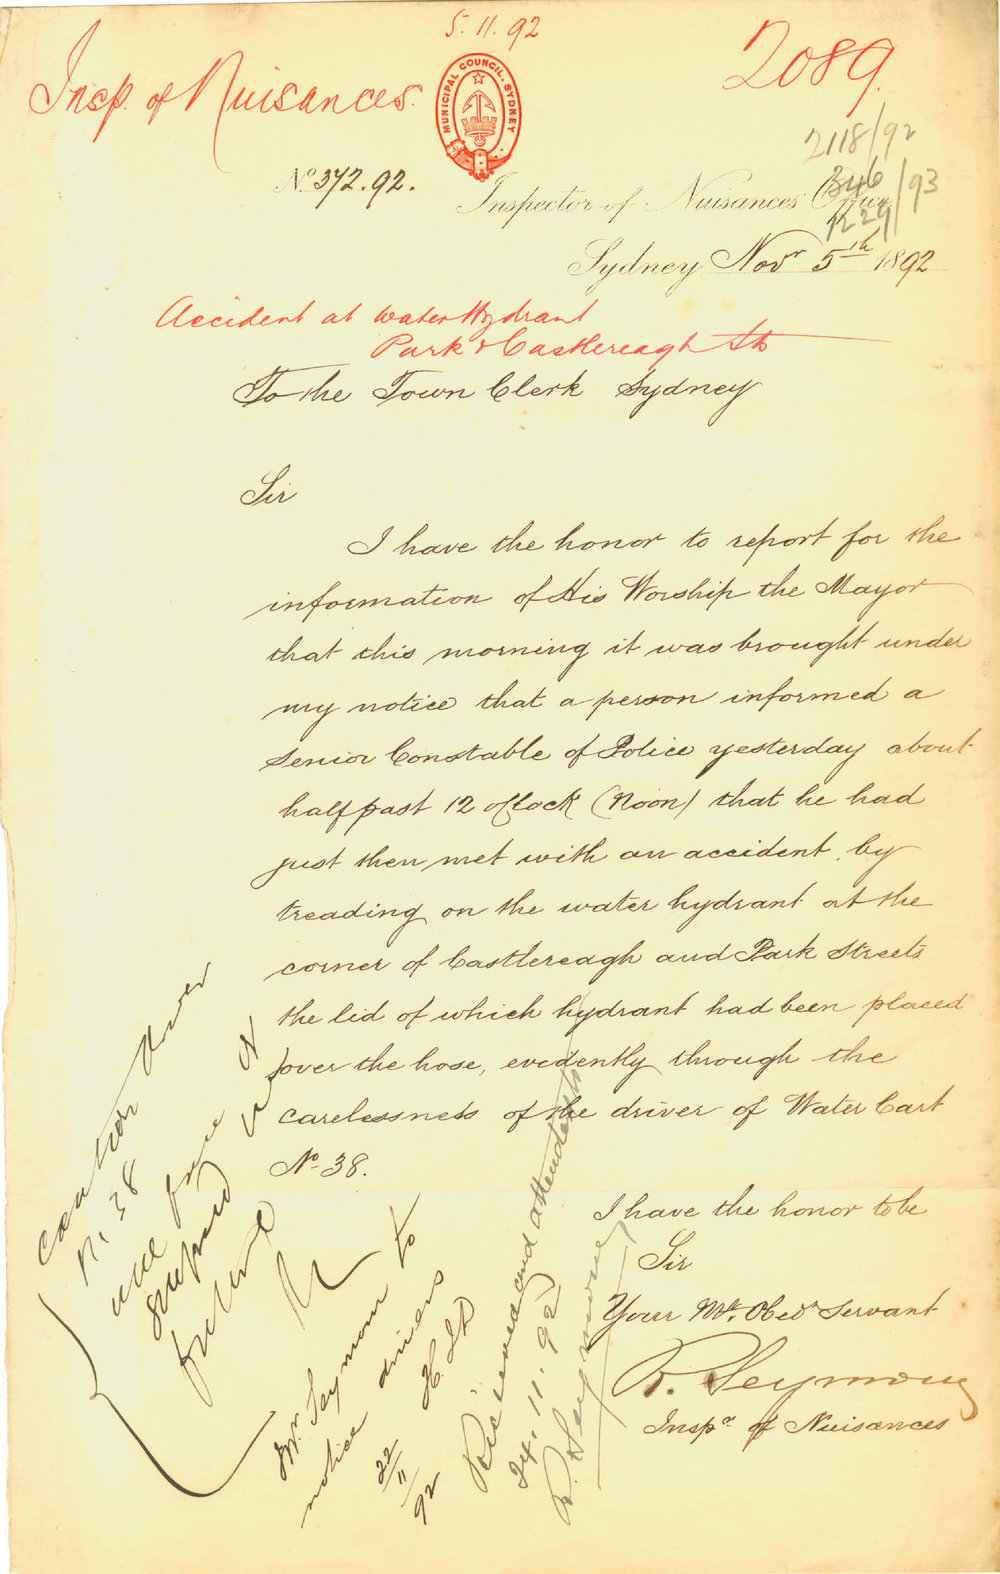 5.11.92
Insp. of Nuisances.
2089.
MUNICIPAL COUNCIL. SYDNEY
2118/92
346
1229/93
No 372.92.
Inspector of Nuisances Office
Sydney Novr 5th 1892
Accident at Water Hydrant
Park & Castlereagh Sts
To the Town Clerk Sydney
Sir
I have the honor to report for the
information of His Worship the Mayor
that this morning it was brought under
my notice that a person informed a
Senior Constable of Police yesterday about
half past 12 oClock (Noon) that he had
just then met with an accident, by
treading on the water hydrant at the
corner of Castlereagh and Park Streets
the lid of which hydrant had been placed
over the hose, evidently through the
carelessness of the driver of Water Cart
No 38.
I have the honor to be
Sir
Your Mt. Obedt Servant
R. Seymour
Inspr of Nuisances
Caution driver
No 38
future
Mr Seymour to
notice drivers
22/11/92
Received and attended to
24.11.92
R. Seymour